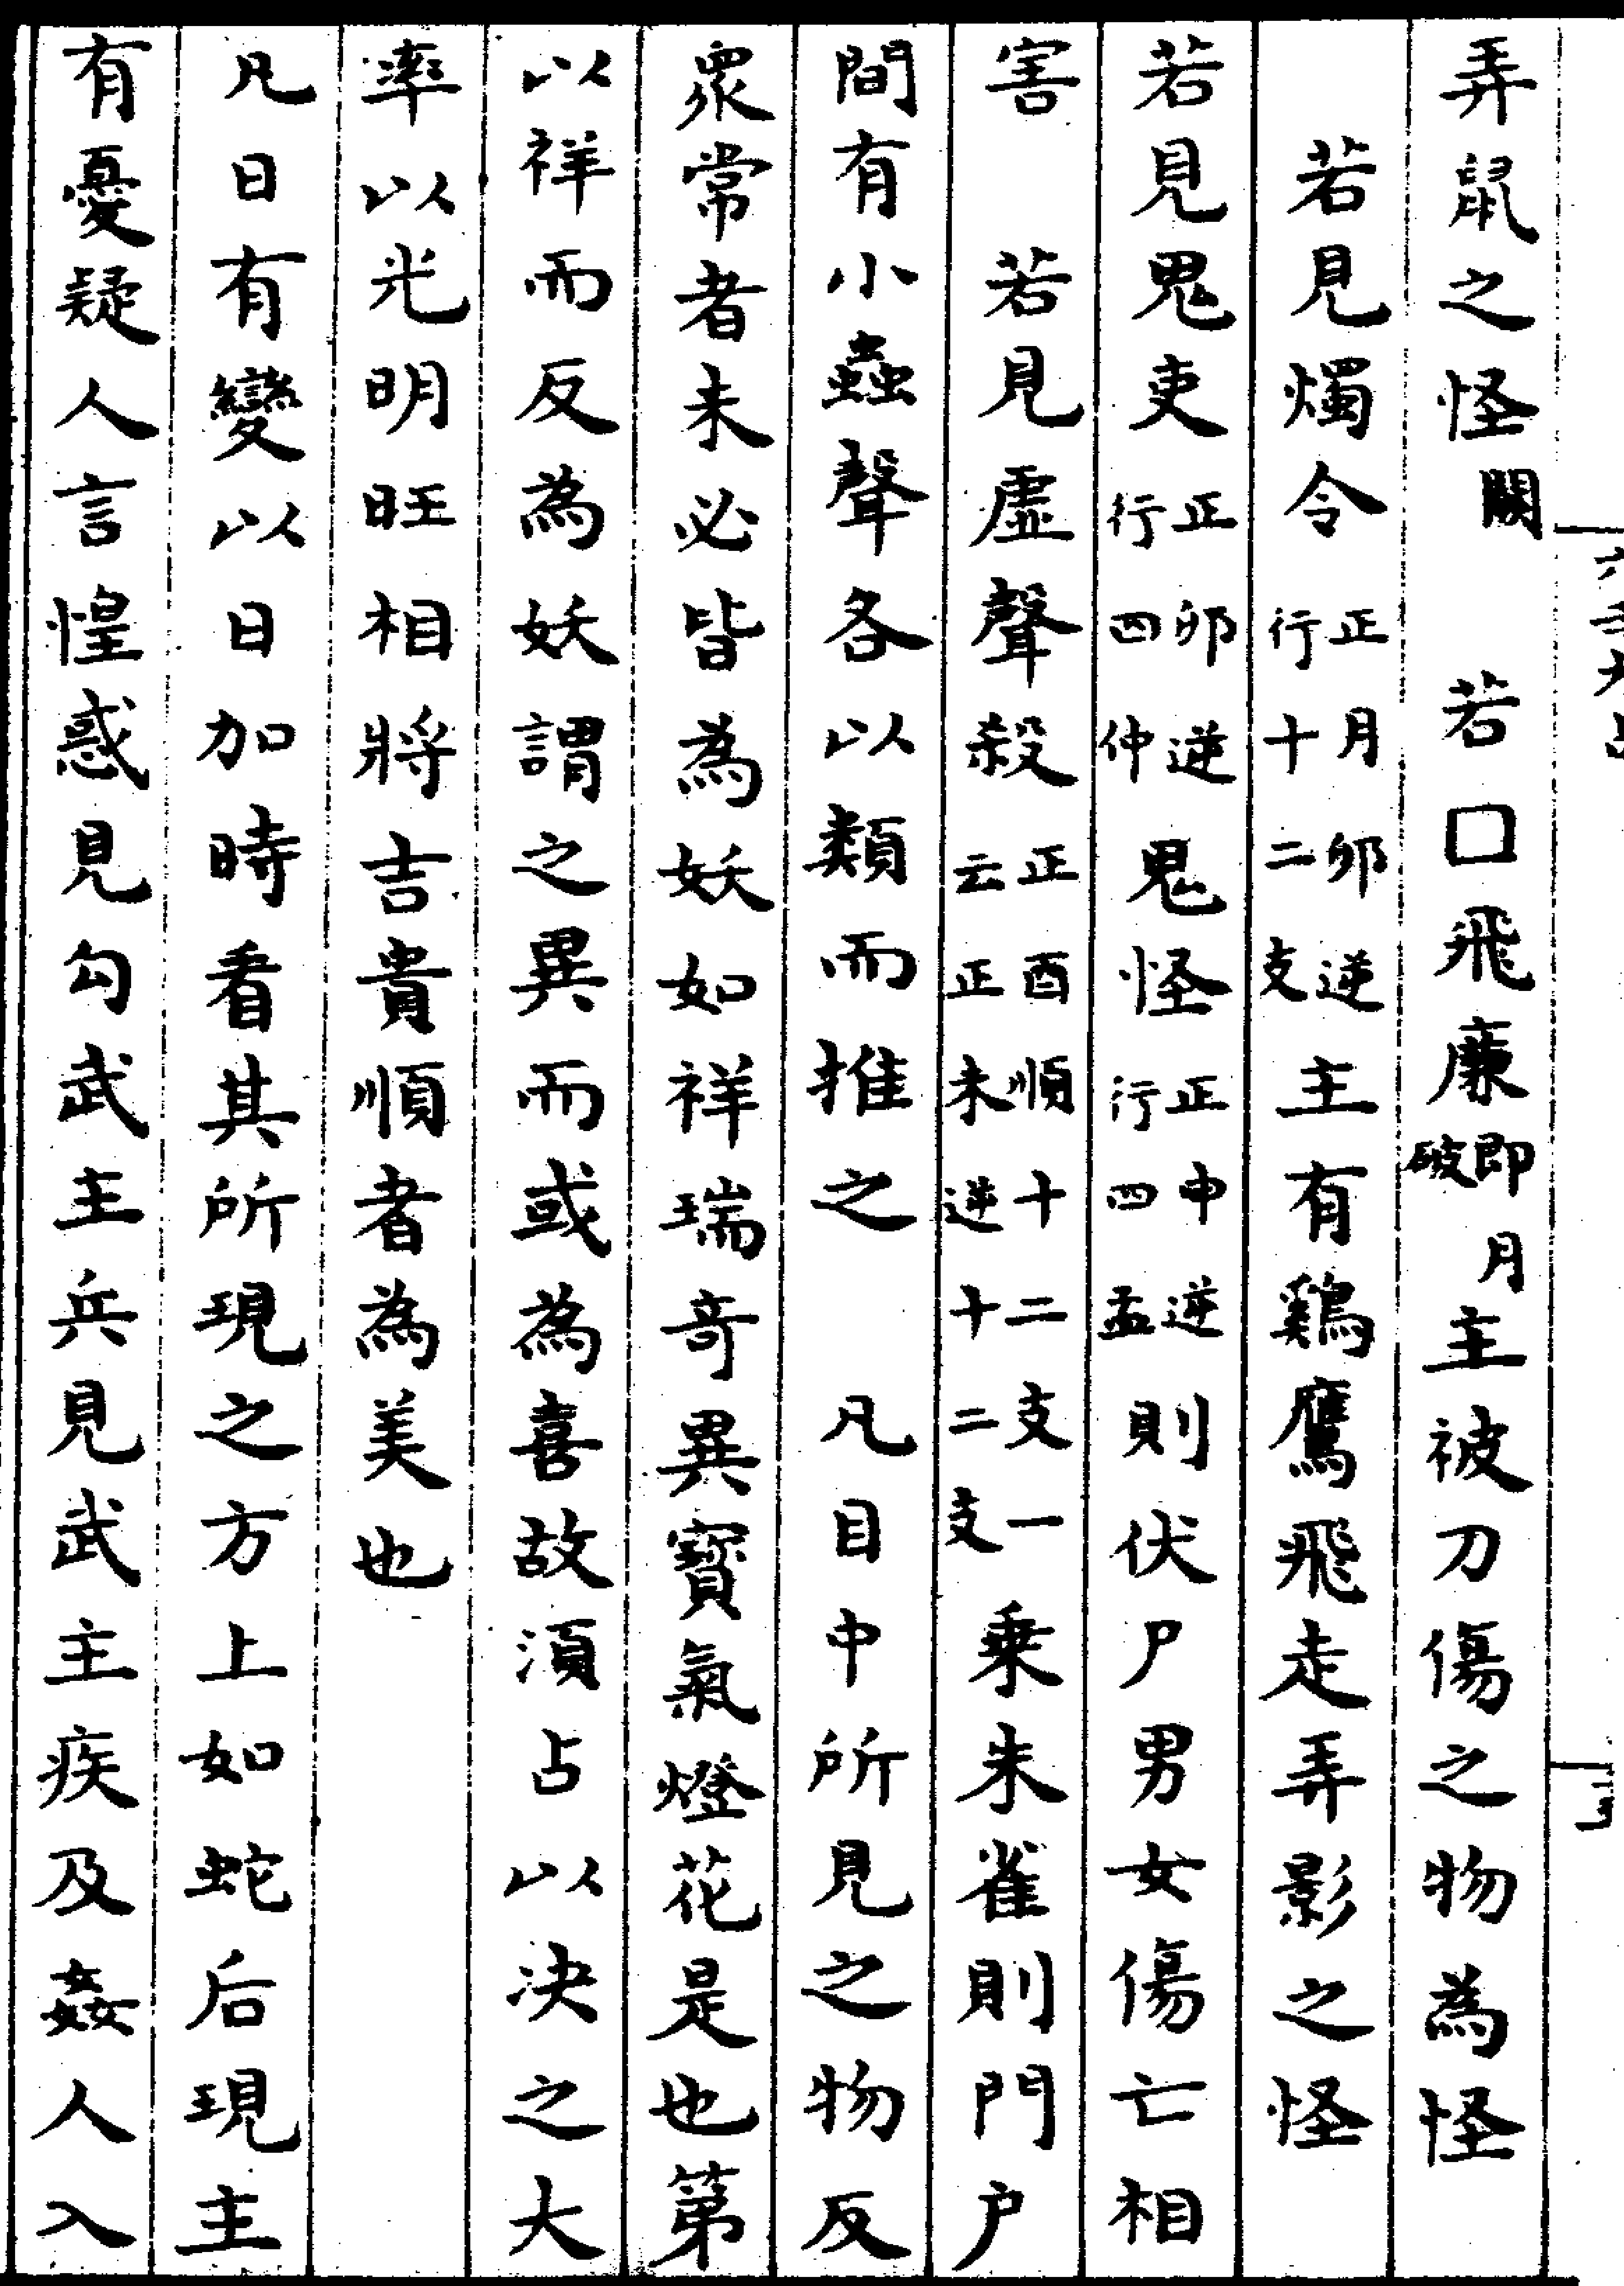 弄鼠之怪闕　若口飛廉即月破主被刀傷之物為怪
若見燭令正月卯逆行十二支主有鷄鷹飛走弄影之怪
若見鬼吏正卯逆行四仲鬼怪正申逆行四孟則伏尸男女傷亡相
害　若見虛聲殺正酉順十二支一云正未逆十二支乗朱雀則門户
間有小蟲聲各以類而推之　凡目中所見之物反
衆常者未必皆為妖如祥瑞奇異寳氣燈花是也第
以祥而反為妖謂之異而或為喜故湏占以決之大
率以光明旺相將吉貴順者為美也
凡日有變以日加時看其所現之方上如蛇后現主
有憂疑人言惶惑見勾武主兵見武主疾及姦人入